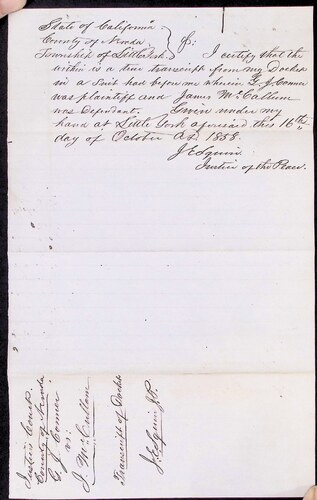 State of California
County of Nevada } ss.
Township of Little York I certify that the
within is a true transcript from my Docket
in a Suit had before me wherein G. J. Conner
was plaintiff and James McCallum
was Defendant Given under my
hand at Little York aforesaid this 16th
day of October A.D. 1858.
J E Squire
Justice of the Peace.
Justice Court
County of Nevada
G. J. Conner
vs.
J. McCullum
Transcript of Docket
J. E. Squire J.P.